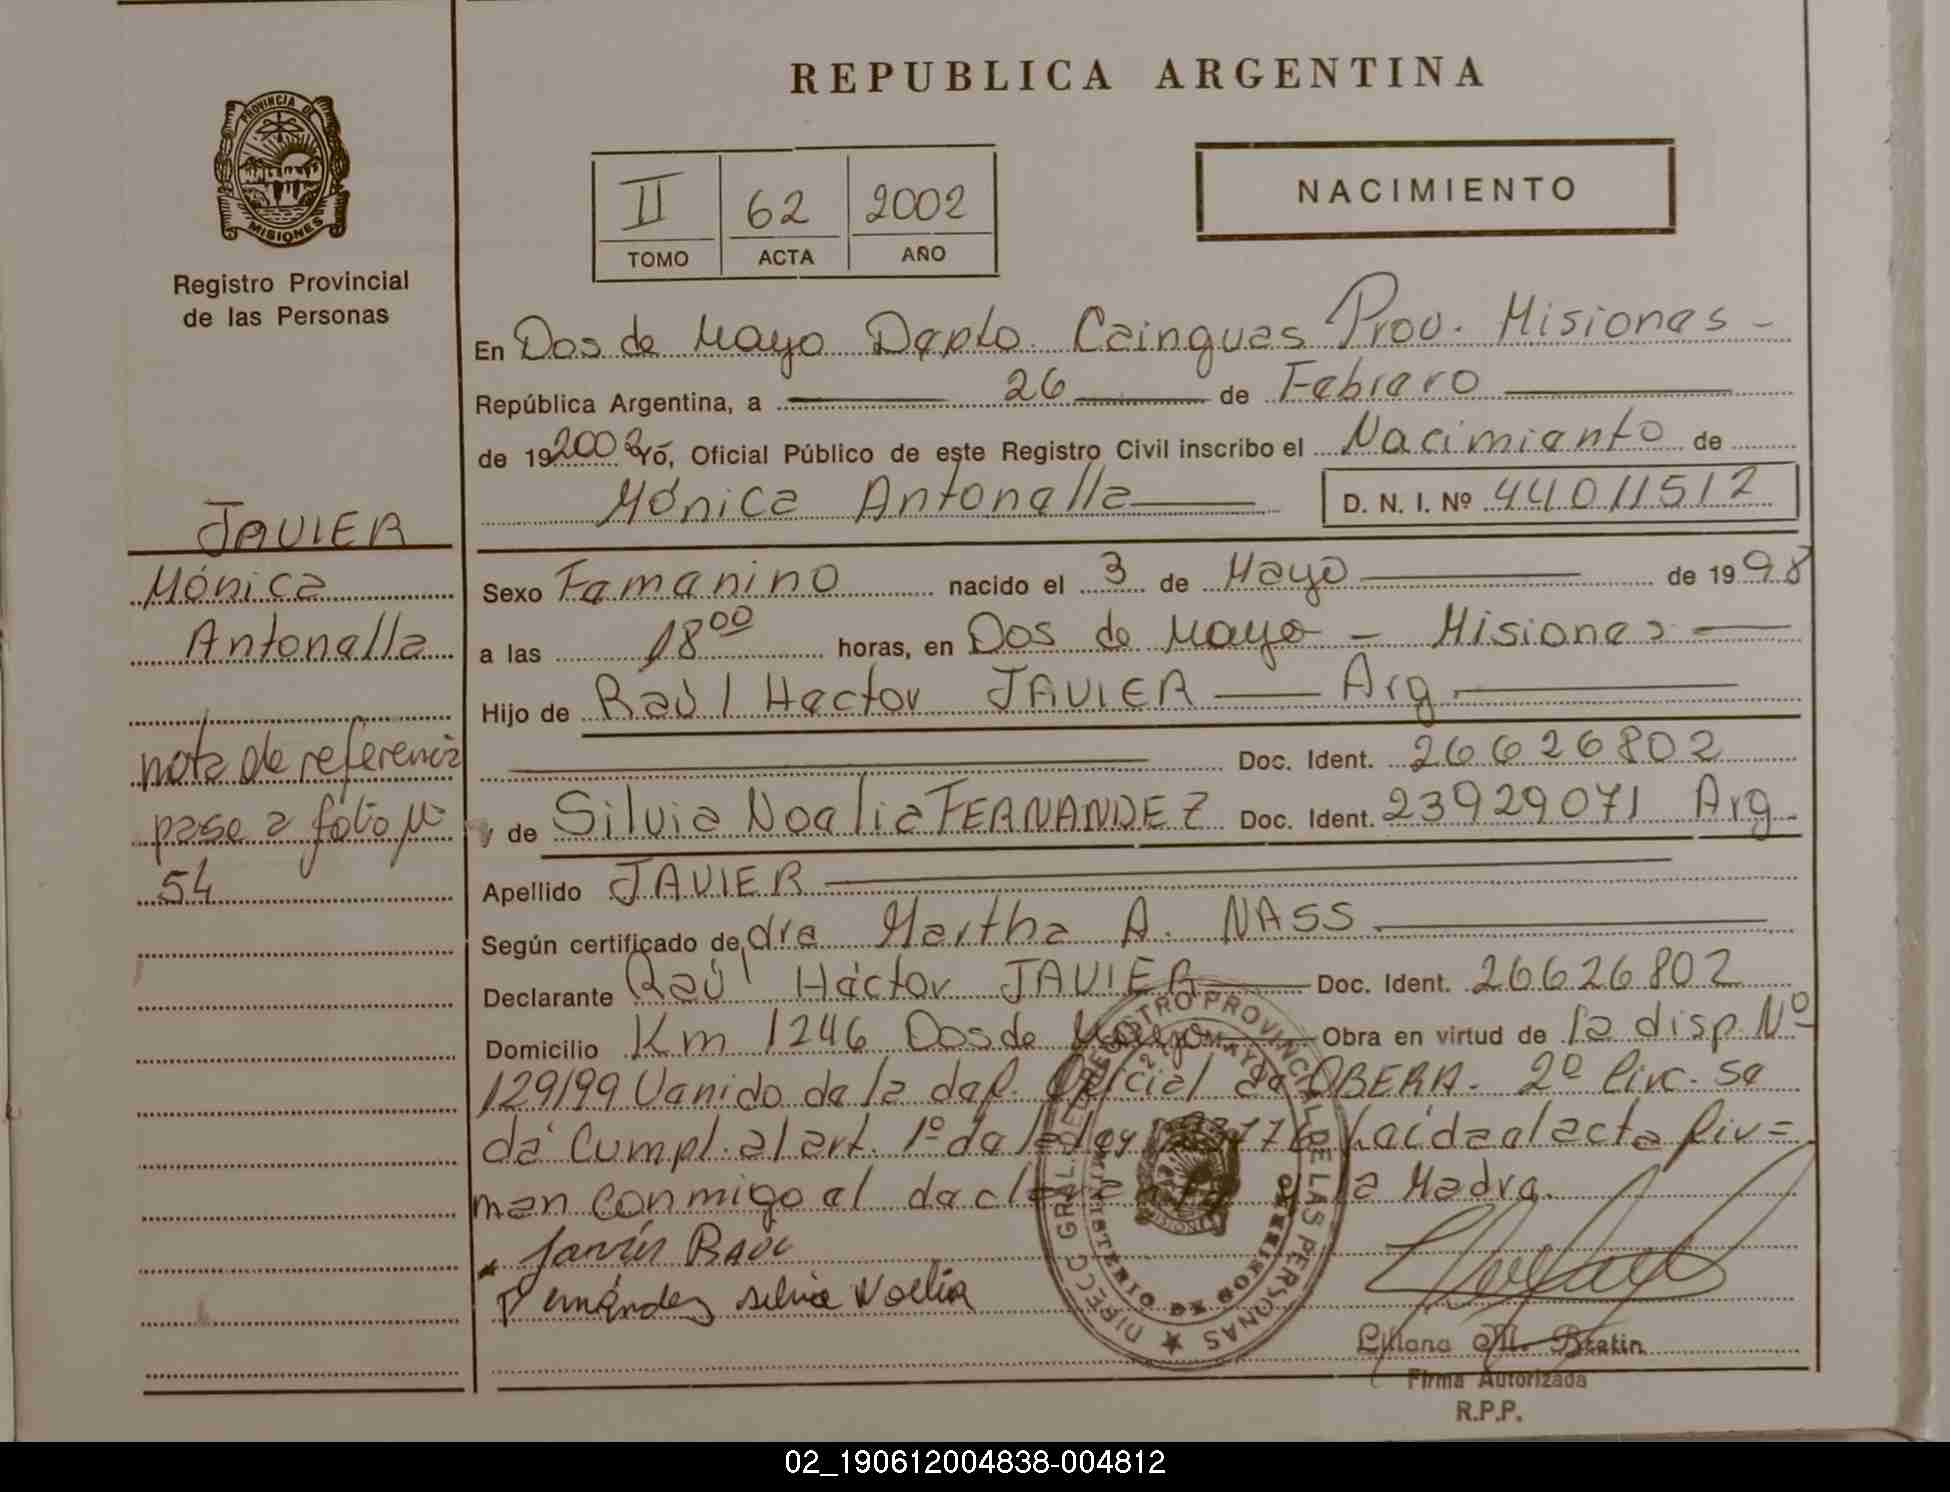 REPUBLICA ARGENTINA
PROVINCIA DE
MISIONES
Registro Provincial
de las Personas
II 62 2002
TOMO ACTA AÑO
NACIMIENTO
En Dos de Mayo Depto. Cainguas Prov. Misiones -
República Argentina, a 26 de Febrero
de 19 2002 Yo, Oficial Público de este Registro Civil inscribo el Nacimiento de
Mónica Antonella D. N. I. Nº 44011512
JAVIER
Mónica
Antonella
nota de referencia
pase a folio Nº
54
Sexo Femenino nacido el 3 de Mayo de 19 98
a las 18 00 horas, en Dos de Mayo - Misiones
Hijo de Raúl Hector JAVIER Arg
Doc. Ident. 26626802
y de Silvia Noelia FERNANDEZ Doc. Ident. 23929071 Arg.
Apellido JAVIER
Según certificado de dra Martha A. NASS
Declarante Raúl Héctor JAVIER Doc. Ident. 26626802
Domicilio Km 1246 Dos de Mayo Obra en virtud de la disp. Nº
129/99 Venido de la def. Oficial de OBERA. 2º Circ. Se
dá Cumpl. al art. 1º de la ley Leída el acta fir=
man conmigo el y la Madre.
Javier Raul
Fernández silvia Noelia
DIRECC GRAL. DEL REGISTRO PROVINCIAL DE LAS PERSONAS
MINISTERIO DE GOBIERNO
2 DE MAYO
Liliana M. Bretin
Firma Autorizada
R.P.P.
02_190612004838-004812